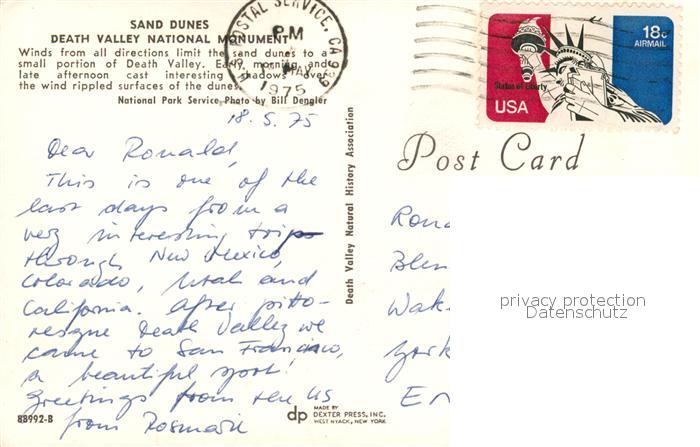 SAND DUNES
DEATH VALLEY NATIONAL MONUMENT
Winds from all directions limit the sand dunes to a
small portion of Death Valley. Early morning and
late afternoon cast interesting shadows over
the wind rippled surfaces of the dunes.
National Park Service Photo by Bill Dengler
POSTAL SERVICE, CA
PM
MAY
1975
18c
AIRMAIL
Statue of Liberty
USA
18. 5. 75
Dear Ronald,
This is one of the
last days from a
very interesting trip
through New Mexico,
Colorado, Utah and
California. After pitto-
resque Death Valley we
came to San Francisco,
a beautiful spot!
Greetings from the US
from Rosmarie
Death Valley Natural History Association
Post Card
Rona
Blen
Wak
York
En
privacy protection
Datenschutz
88992-B
dp
MADE BY
DEXTER PRESS, INC.
WEST NYACK, NEW YORK